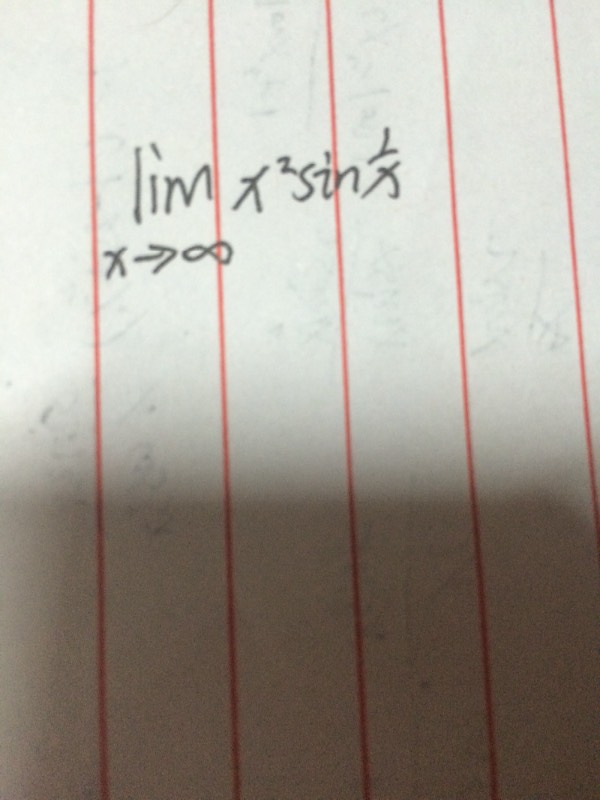 lim x² sin 1/x
x→∞